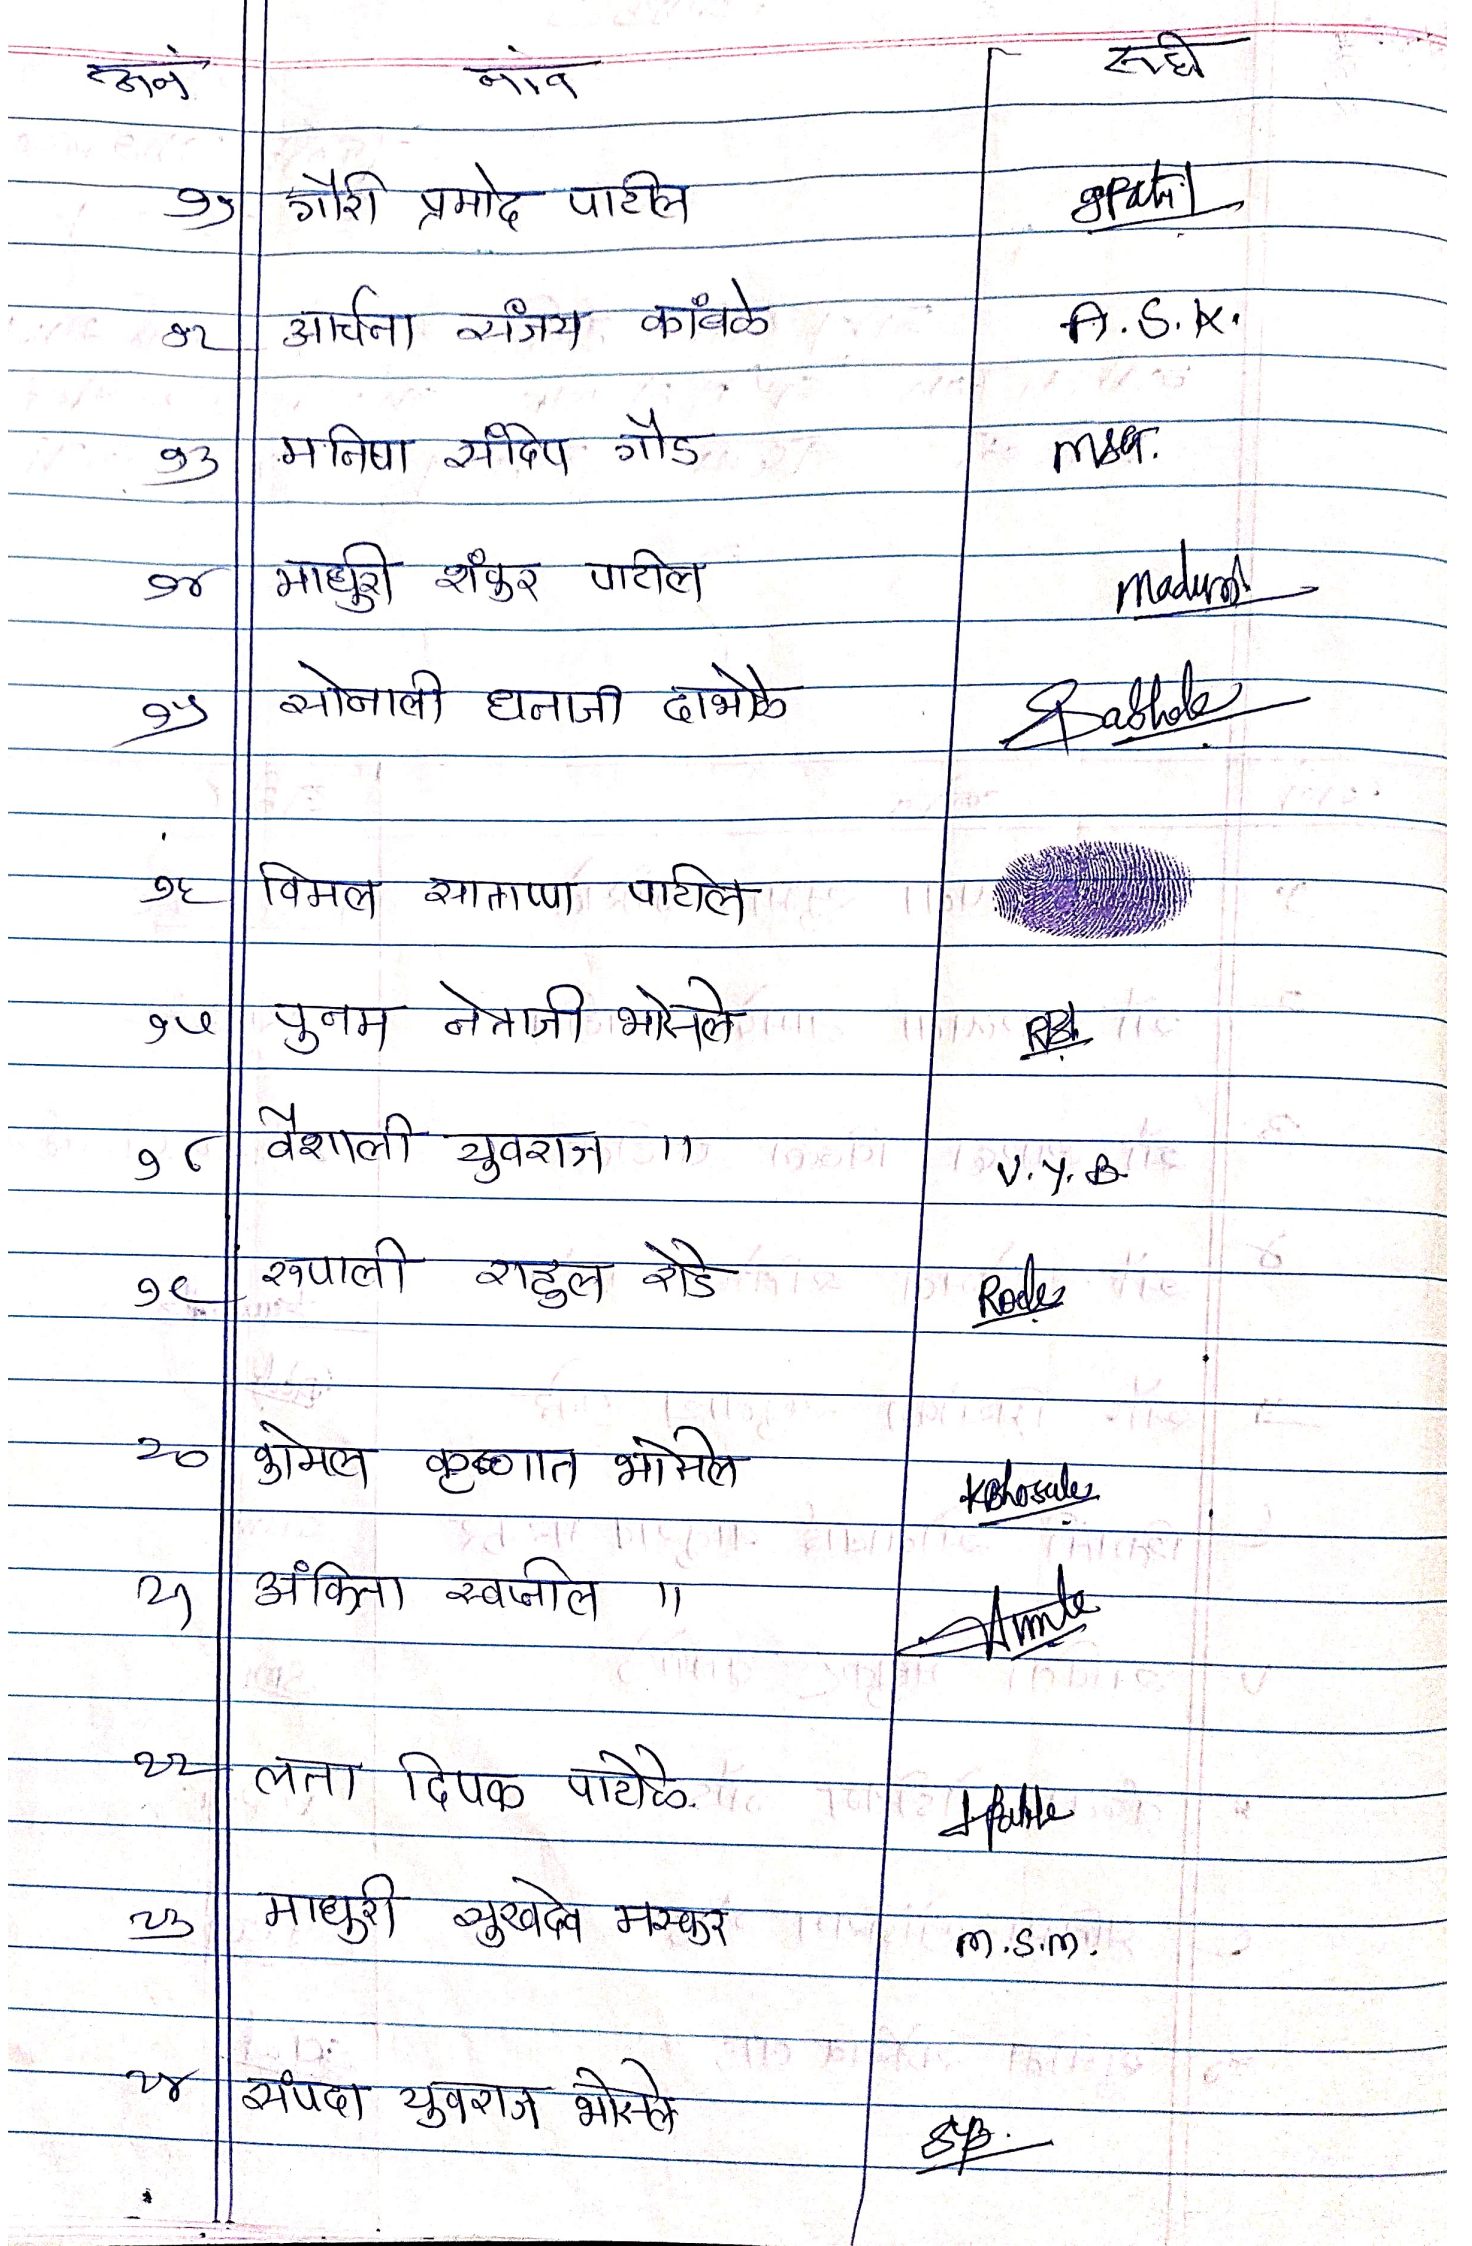 अ.नं नांव सही
११ गौरी प्रमोद पाटील gpatil
१२ आर्चना संजय कांबळे A.S.K.
१३ मनिषा संदिप गौड MSG.
१४ माधुरी शंकर पाटील
१५ सोनाली धनाजी दाभोळे Dabhole
१६ विमल साताप्पा पाटील
१७ पुनम नेताजी भोसले
१८ वैशाली युवराज " V.Y.B.
१९ रुपाली राहुल रोडे Rode
२० कोमल कृष्णात भोसले KBhosale
२१ अंकिता स्वप्नील "
२२ लता दिपक पाटोळे.
२३ माधुरी सुखदेव मस्कर M.S.M.
२४ संपदा युवराज भोसले